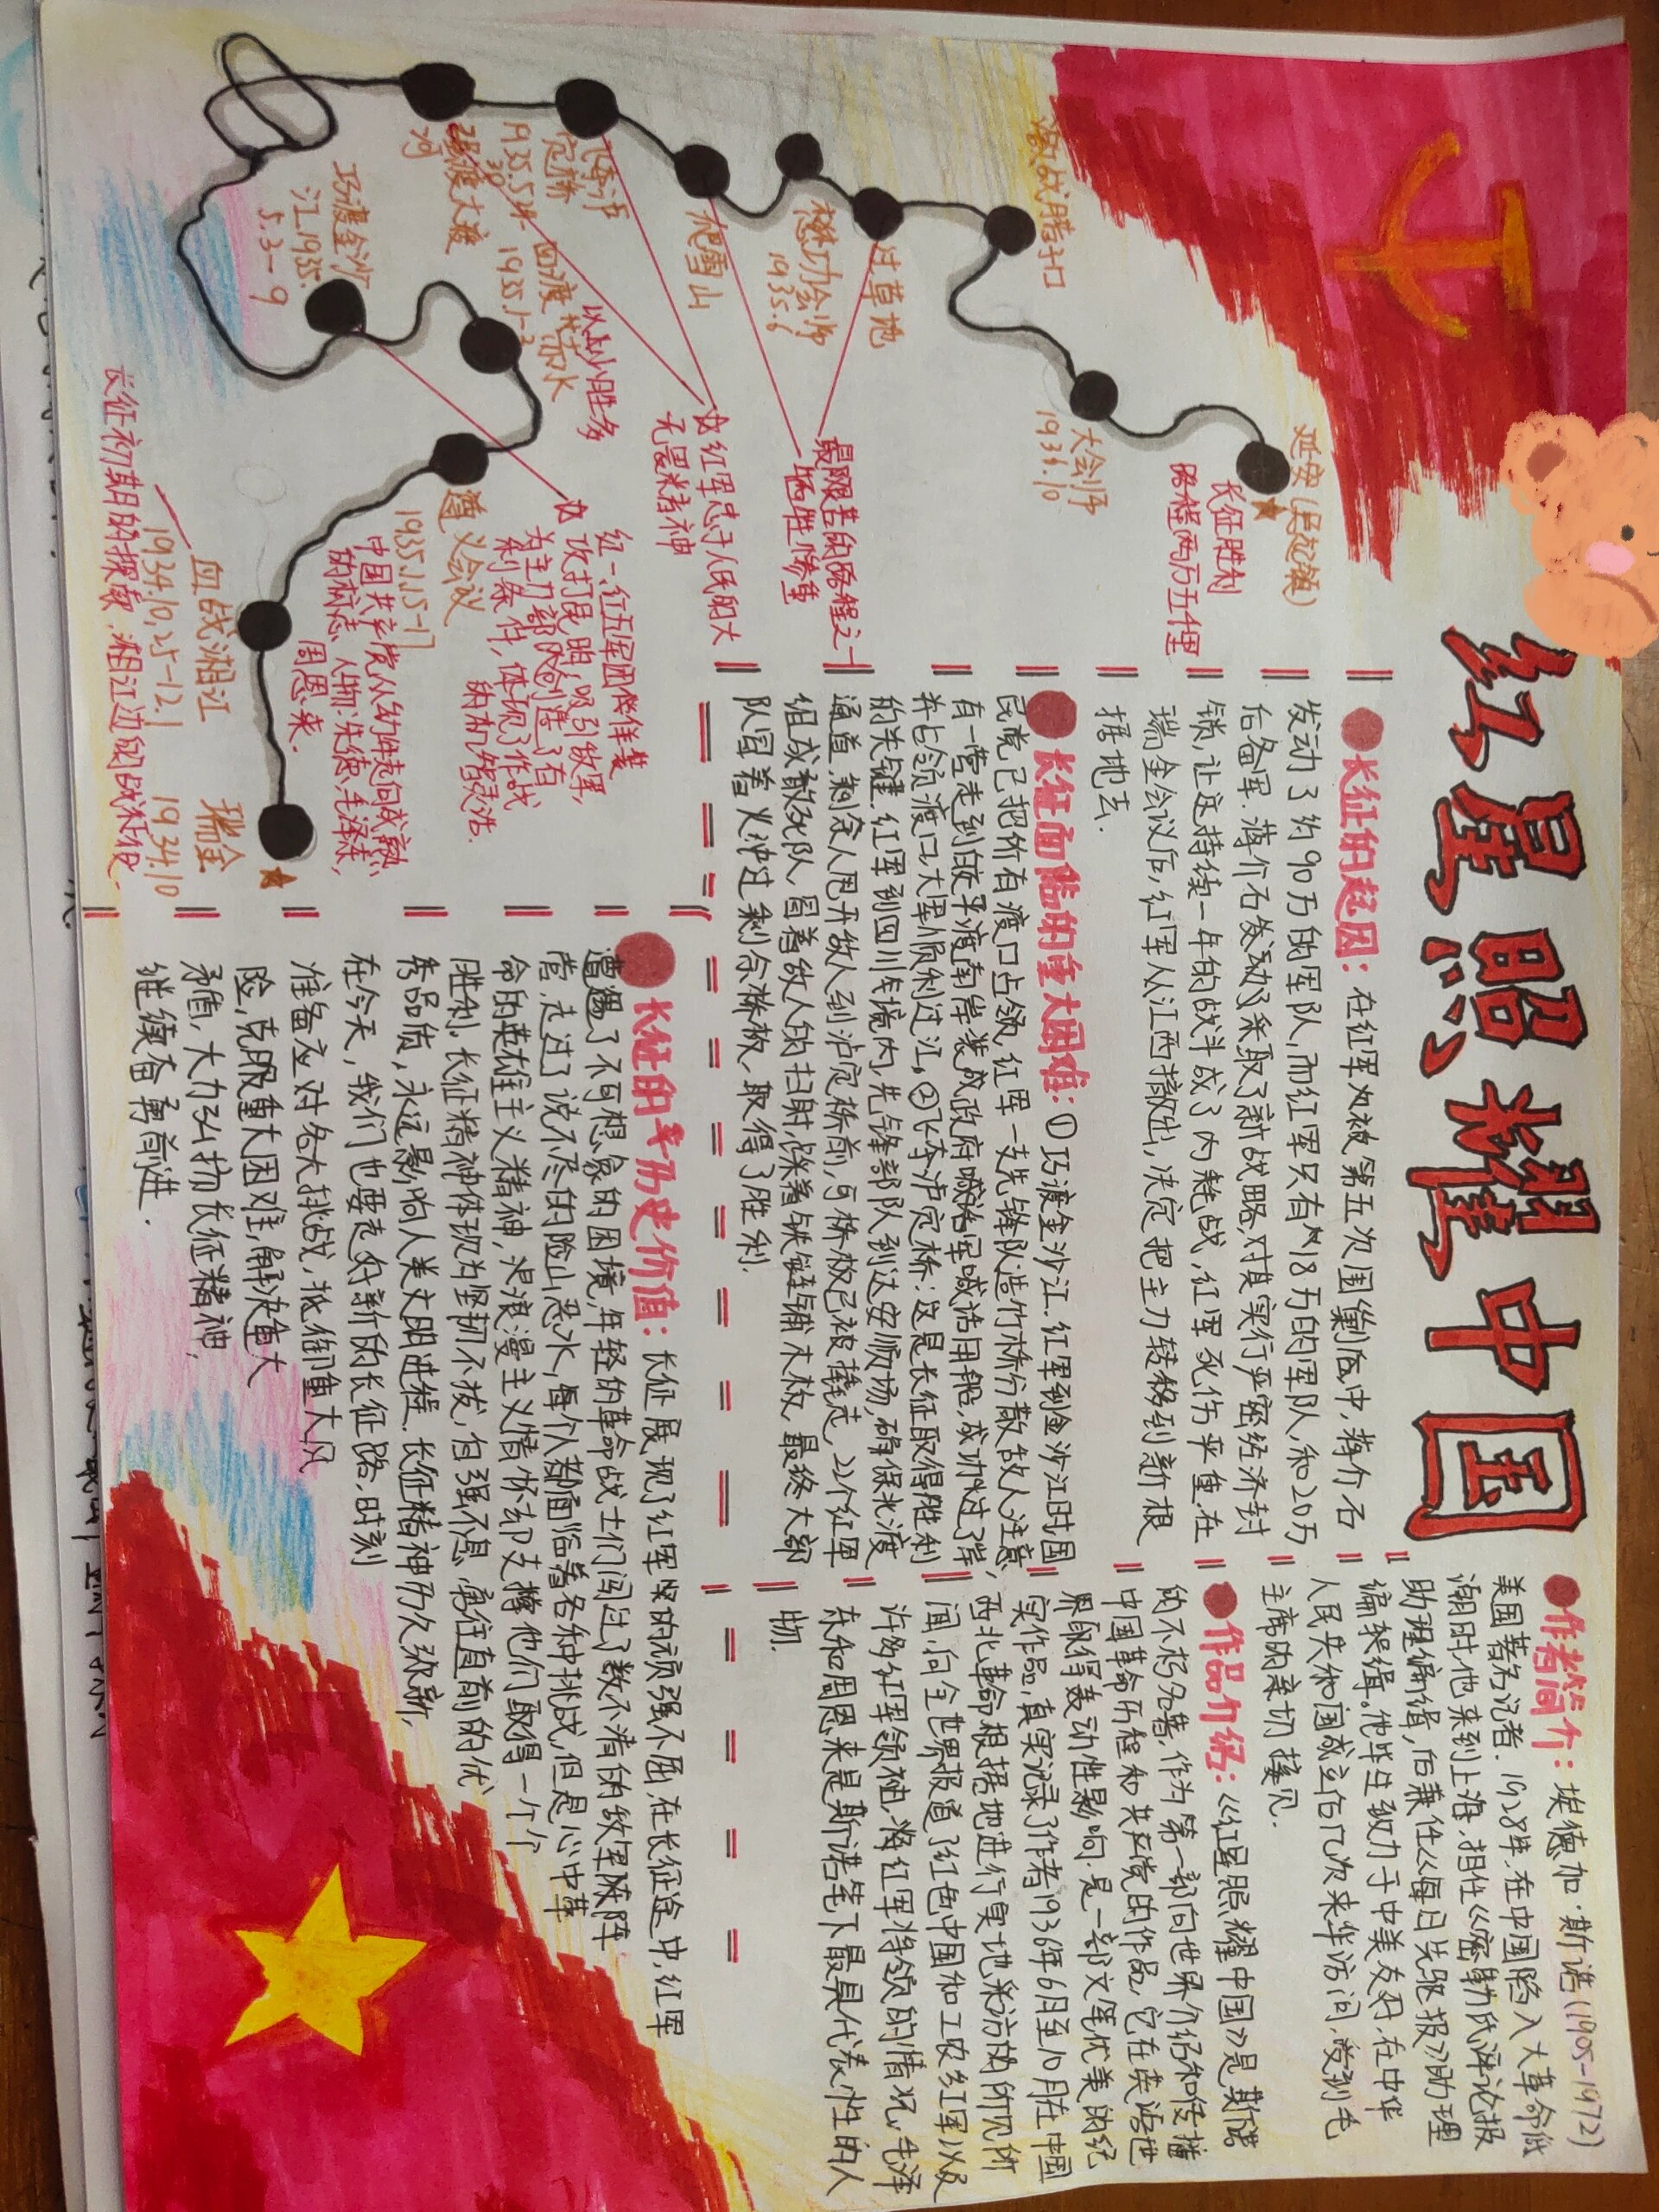 红星照耀中国
延安(吴起镇)
长征胜利
路程两万五千里
大会师
1936.10
激战腊子口
过草地
懋功会师
1935.6
爬雪山
飞夺泸
定桥
1935.5.29
强渡大渡
河
四渡赤水
1935.1-3
以少胜多
巧渡金沙
江1935.
5.3-9
遵义会议
1935.1.15-17
中国共产党从幼稚走向成熟
的标志、人物:朱德、毛泽东,
周恩来.
血战湘江
1934.10.25-12.1
长征初期的探索,湘江边的战
瑞金
1934.10
最艰苦的路程之一
牺牲惨重
红军忠于人民的大
无畏精神
红一、红五军团佯装
攻打昆明,吸引敌军,
为主力部队创造了有
利条件,体现了作战
的机智灵活.
●长征的起因:在红军为被第五次围剿底中,蒋介石
发动了约90万的军队,而红军只有18万的军队,和20万
后备军.蒋介石发动了采取了新战略,对其实行严密经济封
锁,让这持续一年的战斗成了内耗战,红军死伤严重.在
瑞金会议后,红军从江西撤出,决定把主力转移到新根
据地去.
●长征面临的重大困难:①巧渡金沙江:红军到金沙江时国
民党已把所有渡口占领,红军一支先锋队造竹桥分散敌人注意,
有一营走到皎平渡南岸装成政府喊话军喊话用船,成功过了岸
并占领渡口大军顺利过江。②飞夺泸定桥:这是长征取得胜利
的关键.红军到四川库境内,先锋部队到达安顺场,确保北渡
通道,剩余人甩开敌人到泸定桥前,可桥板已被撬走,22个红军
组成敢死队,冒着敌人的扫射,踩着铁链铺木板,最终大部
队冒着火冲过剩余桥板,取得了胜利.
●长征的历史价值:长征展现了红军的顽强不屈,在长征途中,红军
遭遇了不可想象的困境,年轻的革命战士们闯过了数不清的敌军阵
营,走过了说不尽的险山恶水,每个人都面临着各种挑战,但是心中革
命的英雄主义精神,浪漫主义情怀却支撑他们取得一个个
胜利.长征精神体现为坚韧不拔,自强不息,勇往直前的优
秀品质,永远影响人类文明进程.长征精神历久弥新,
在今天,我们也要走好新的长征路,时刻
准备应对各大挑战,抵御重大风
险,克服重大困难,解决重大
矛盾,大力弘扬长征精神,
继续奋勇前进.
●作者简介:埃德加·斯诺(1905-1972)
美国著名记者.1928年,在中国陷入大革命低
潮时,他来到上海,担任《密勒氏评论报
助理编辑,后兼任《每日先驱报》助理
编辑.他毕生致力于中美友好,在中华
人民共和国成立后几次来华访问,受到毛
主席的亲切接见.
●作品介绍:《红星照耀中国》是斯诺
的不朽名著,作为第一部向世界介绍和传播
中国革命历程和共产党的作品,它在英语世
界取得轰动性影响.是一部文笔优美的纪
实作品,真实记录了作者1936年6月至10月在中国
西北革命根据地进行实地采访的所见所
闻,向全世界报道了红色中国和工农红军以及
许多红军领袖,将红军将领的情况,毛泽
东和周恩来是斯诺笔下最具代表性的人
物.